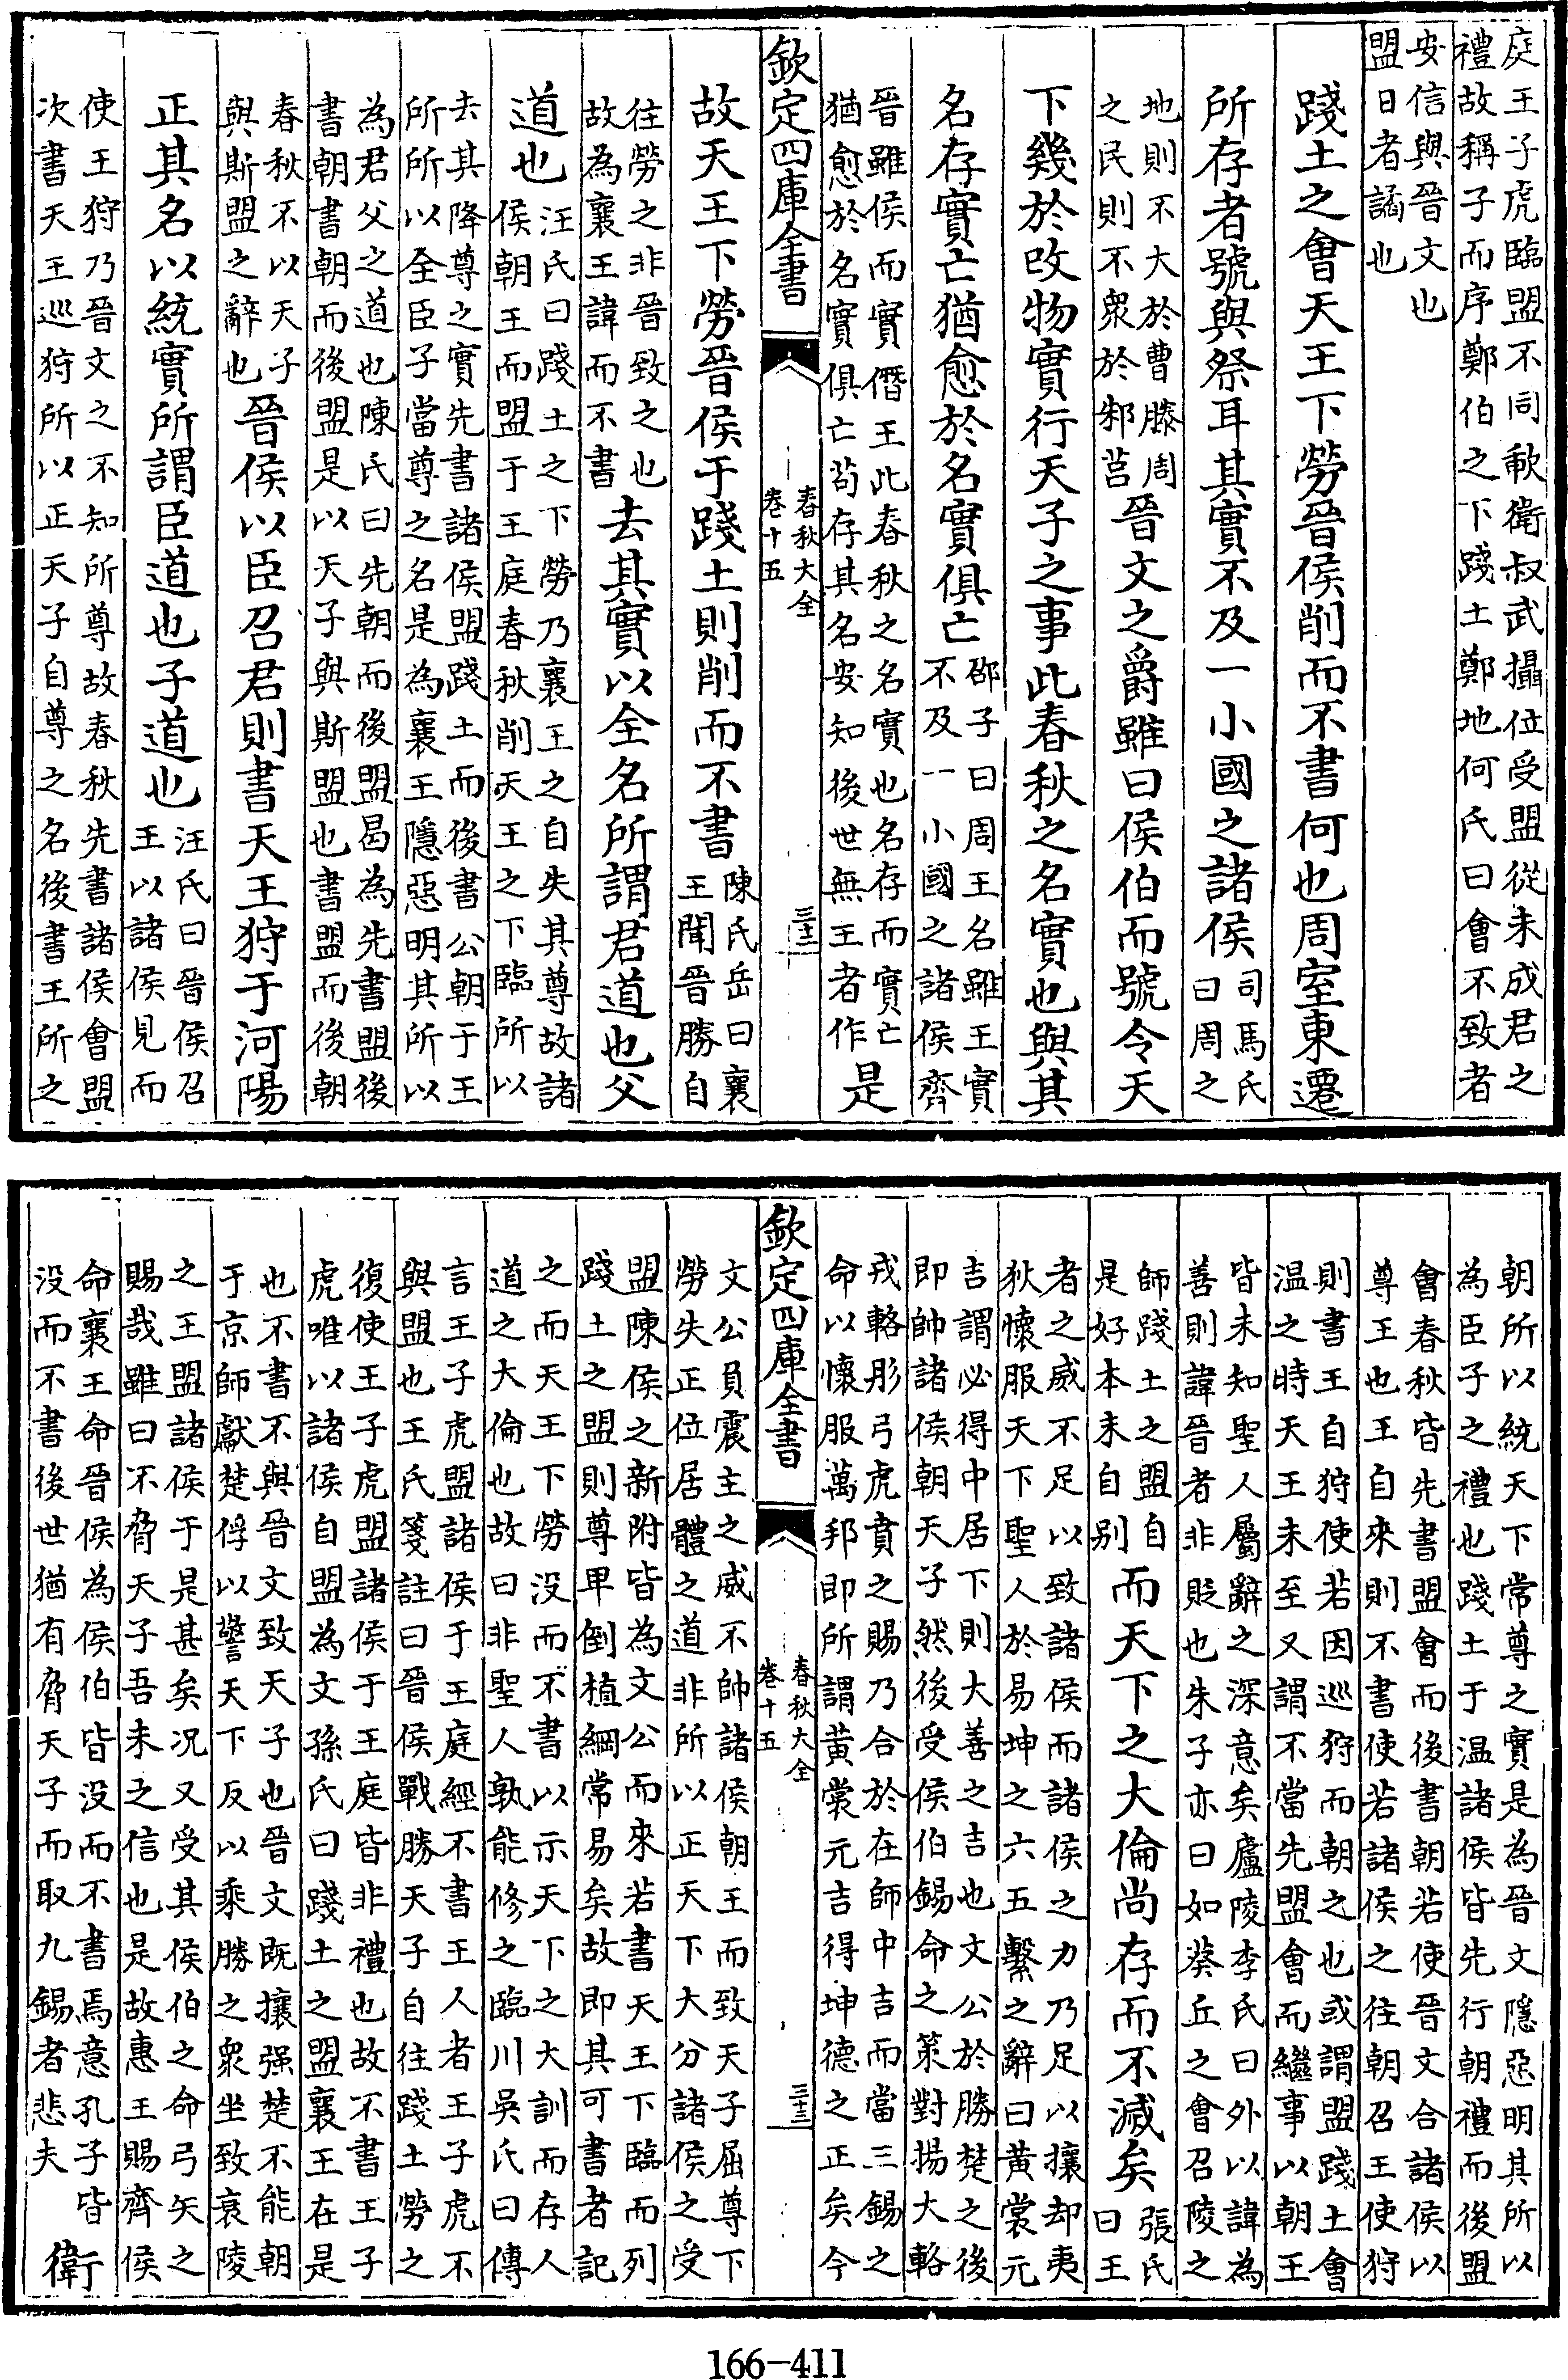 庭王子虎臨盟不同歃衛叔武攝位受盟從未成君之
禮故稱子而序鄭伯之下踐土鄭地何氏曰會不致者
安信與晉文也
盟日者譎也
踐土之會天王下勞晉侯削而不書何也周室東遷
所存者號與祭耳其實不及一小國之諸侯司馬氏
曰周之
地則不大於曹滕周
之民則不衆於邾莒晉文之爵雖曰侯伯而號令天
下幾於改物實行天子之事此春秋之名實也與其
名存實亡猶愈於名實俱亡邵子曰周王名雖王實
不及一小國之諸侯齊
晉雖侯而實僭王此春秋之名實也名存而實亡
猶愈於名實俱亡苟存其名安知後世無王者作是
欽定四庫全書
春秋大全
卷十五
三十二
故天王下勞晉侯于踐土則削而不書陳氏岳曰襄
王聞晉勝自
往勞之非晉致之也
故為襄王諱而不書去其實以全名所謂君道也父
道也汪氏曰踐土之下勞乃襄王之自失其尊故諸
侯朝王而盟于王庭春秋削天王之下臨所以
去其降尊之實先書諸侯盟踐土而後書公朝于王
所所以全臣子當尊之名是為襄王隱惡明其所以
為君父之道也陳氏曰先朝而後盟曷為先書盟後
書朝書朝而後盟是以天子與斯盟也書盟而後朝
春秋不以天子
與斯盟之辭也晉侯以臣召君則書天王狩于河陽
正其名以統實所謂臣道也子道也汪氏曰晉侯召
王以諸侯見而
使王狩乃晉文之不知所尊故春秋先書諸侯會盟
次書天王巡狩所以正天子自尊之名後書王所之
朝所以統天下常尊之實是為晉文隱惡明其所以
為臣子之禮也踐土于温諸侯皆先行朝禮而後盟
會春秋皆先書盟會而後書朝若使晉文合諸侯以
尊王也王自來則不書使若諸侯之往朝召王使狩
則書王自狩使若因巡狩而朝之也或謂盟踐土會
温之時天王未至又謂不當先盟會而繼事以朝王
皆未知聖人屬辭之深意矣廬陵李氏曰外以諱為
善則諱晉者非貶也朱子亦曰如葵丘之會召陵之
師踐土之盟自
是好本末自别而天下之大倫尚存而不滅矣張氏
曰王
者之威不足以致諸侯而諸侯之力乃足以攘却夷
狄懷服天下聖人於易坤之六五繫之辭曰黄裳元
吉謂必得中居下則大善之吉也文公於勝楚之後
即帥諸侯朝天子然後受侯伯錫命之策對揚大輅
戎輅彤弓虎賁之賜乃合於在師中吉而當三錫之
命以懷服萬邦即所謂黄裳元吉得坤德之正矣今
欽定四庫全書
春秋大全
卷十五
三十三
文公負震主之威不帥諸侯朝王而致天子屈尊下
勞失正位居體之道非所以正天下大分諸侯之受
盟陳侯之新附皆為文公而來若書天王下臨而列
踐土之盟則尊卑倒植綱常易矣故即其可書者記
之而天王下勞没而不書以示天下之大訓而存人
道之大倫也故曰非聖人孰能修之臨川吳氏曰傳
言王子虎盟諸侯于王庭經不書王人者王子虎不
與盟也王氏箋註曰晉侯戰勝天子自往踐土勞之
復使王子虎盟諸侯于王庭皆非禮也故不書王子
虎唯以諸侯自盟為文孫氏曰踐土之盟襄王在是
也不書不與晉文致天子也晉文既攘强楚不能朝
于京師獻楚俘以警天下反以乘勝之衆坐致衰陵
之王盟諸侯于是甚矣況又受其侯伯之命弓矢之
賜哉雖曰不脅天子吾未之信也是故惠王賜齊侯
命襄王命晉侯為侯伯皆没而不書焉意孔子皆
没而不書後世猶有脅天子而取九錫者悲夫衛
166-411